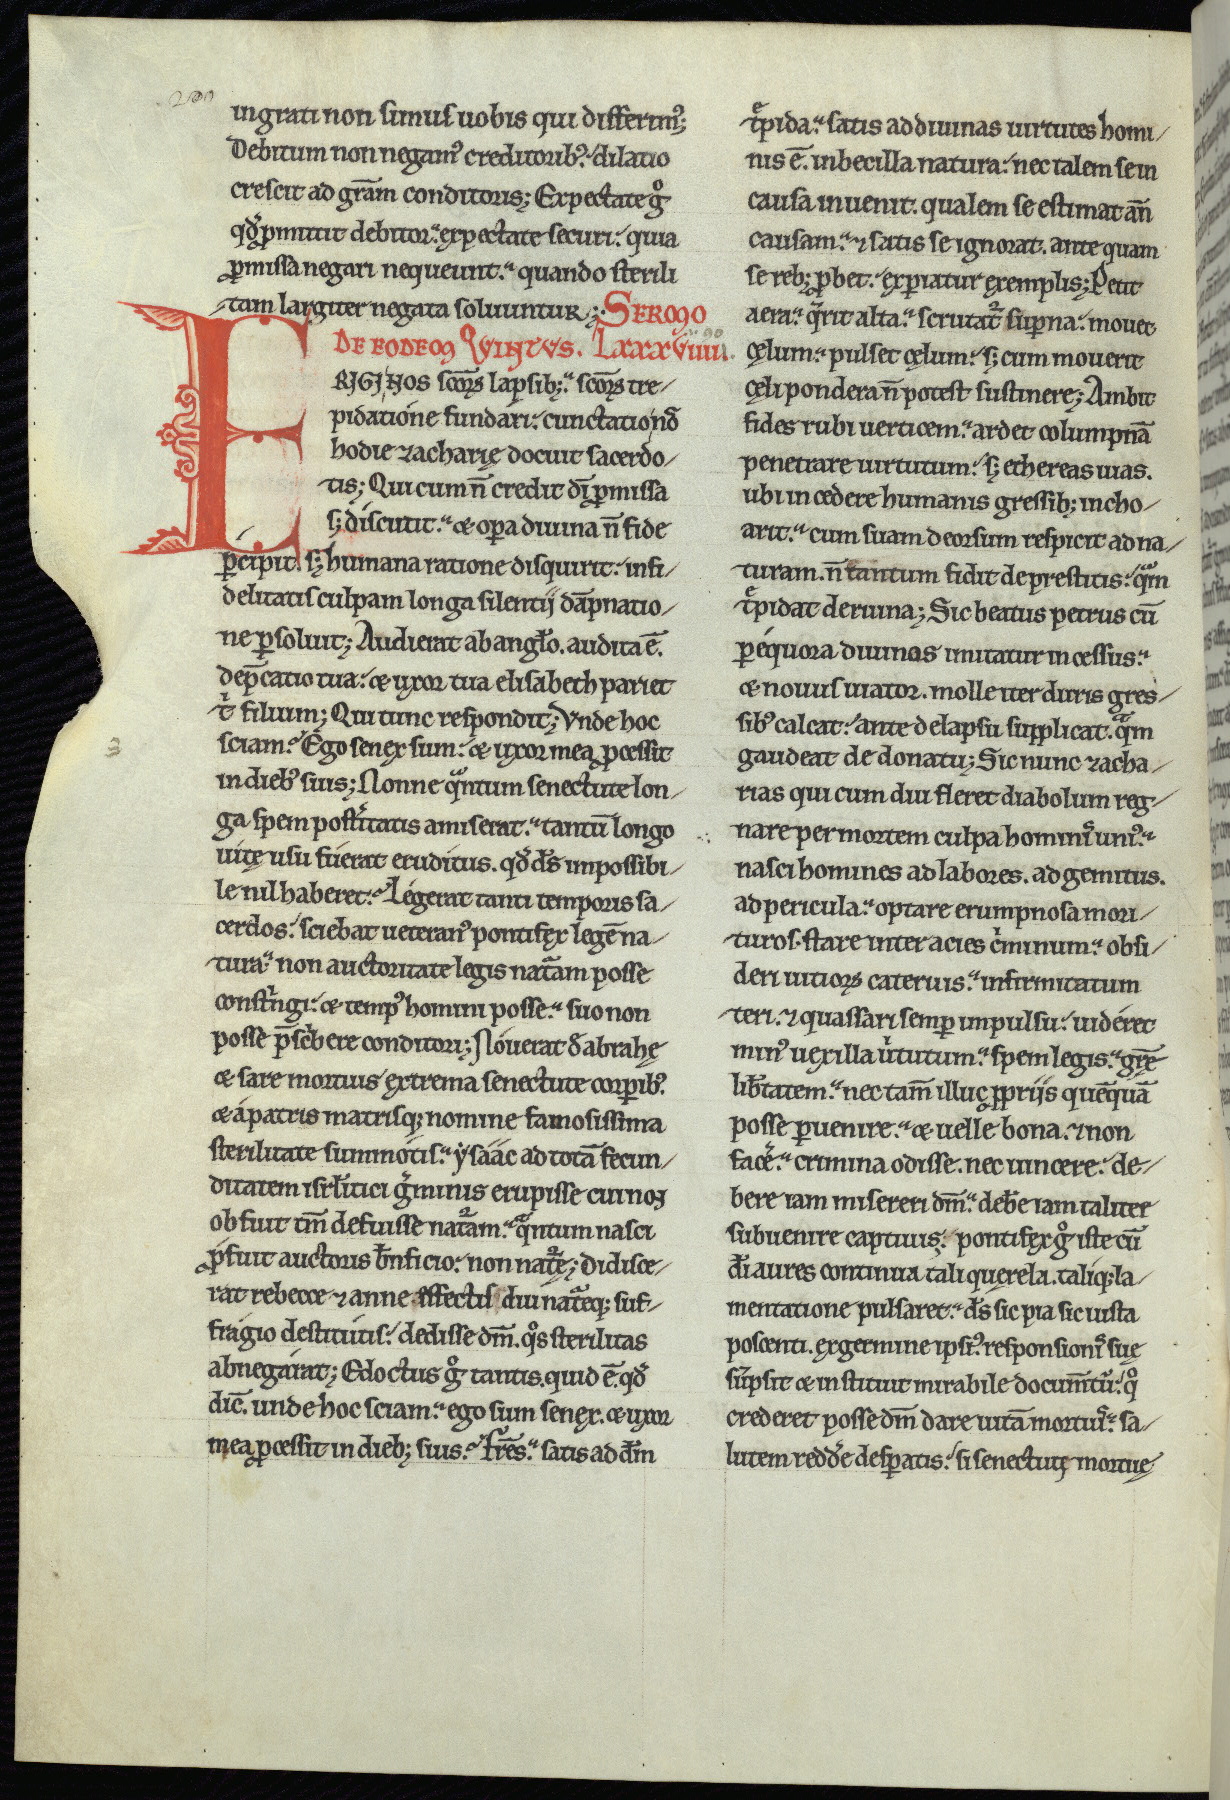 ingrati non sumus uobis qui differim᷒;
Debitum non negam᷒ creditorib᷒: dilatio
crescit ad gr̄am conditoris; Expectate gͦ
qd̄ ꝓmittit debitor: expectate securi: quia
ꝓmissa negari nequeunt: quando sterili
tam largiter negata soluuntur; SERMO
DE EODEM QVINTVS. LXXXVIIII.
ERIGI NOS sc̄oꝝ lapsib;: sc̄oꝝ tre/
pidatione fundari: cunctatio nd̄
hodie zacharię docuit sacerdo/
tis; Qui cum n̄ credit dī ꝓmissa
s; discutit: & oꝑa diuina n̄ fide
ꝑcipit. s; humana ratione disquirit: infi/
delitatis culpam longa silentij dāpnatio/
ne ꝑsoluit; Audierat ab angl̄o. audita ē.
dep̄catio tua: & uxor tua elisabeth pariet
tⁱ filium; Qui tunc respondit; Vnde hoc
sciam: Ego senex sum: & uxor mea ꝓcessit
in dieb᷒ suis; Nonne qͣntum senectute lon/
ga spem postⁱitatis amiserat: tantū longo
uitę usu fuerat eruditus. qd̄ d̄s impossibi/
le nil haberet: Legerat tanti temporis sa/
cerdos: sciebat ueteran᷒ pontifex legē na/
turæ: non auctoritate legis natͣam posse
constⁱngi: & temp᷒ homini posse: suo non
posse p̄scⁱbere conditori; Nouerat d̄ abrahę
& sare mortuis extrema senectute corꝑib᷒
& a patris matrisq; nomine famosissima
sterilitate summotis: ysaac ad totā fecun/
ditatem isrl̄itici gͥminis erupisse cui non
obfuit tm̄ defuisse natͣam: qͣntum nasci
ꝓfuit auctoris b̄nficio: non natͣę; Didisce/
rat rebecce & anne affectis diu natͣeq; suf/
fragio destitutis: dedisse dm̄. qͦs sterilitas
abnegarat; Edoctus gͦ tantis. quid ē. qd̄
dic̄. unde hoc sciam: ego sum senex. & uxor
mea ꝓcessit in dieb; suis: fr̄es: satis ad dm̄
tͤpida: satis ad diuinas uirtutes homi/
nis ē. inbecilla natura: nec talem se in
causa inuenit. qualem se estimat an̄
causam: & satis se ignorat. ante quam
se reb; ꝓbet: exꝑiatur exemplis; Petit
aera: qͥrit alta: scrutat᷒ suꝑna: mouet
cęlum: pulset cęlum: s; cum mouerit
cęli pondera n̄ potest sustinere; Ambit
fides rubi uerticem: ardet columpnā
penetrare uirtutum: s; ethereas uias.
ubi incedere humanis gressib; incho/
arit: cum suam deorsum respicit ad na/
turam. n̄ tantum fidit de prestitis: qͣm
tͤpidat de ruina; Sic beatus petrus cū
ꝑ equora diuinos imitatur incessus:
& nouus uiator. molle iter duris gres/
sib᷒ calcat: ante delapsu supplicat. qͣm
gaudeat de donatu; Sic nunc zacha/
rias qui cum diu fleret diabolum reg/
nare per mortem culpa hominⁱ uni᷒:
nasci homines ad labores. ad gemitus.
ad pericula: optare erumpnosa mori/
turos. stare inter acies cⁱminum: obsi/
deri uitioꝝ cateruis: infirmitatum
teri. & quassari semꝑ impulsu: uideret
min᷒ uexilla uⁱtutum: spem legis: gr̄ę
lib̄tatem: nec tam̄ illuc ꝓprijs quēquā
posse ꝑuenire: & uelle bona. & non
facͤe: crimina odisse. nec uincere: de/
bere iam misereri dm̄: deb̄e iam taliter
subuenire captiuis: pontifex gͦ iste cū
dī aures continua tali querela. taliq; la/
mentatione pulsaret: d̄s sic pia sic iusta
poscenti. ex germine ipsi᷒ responsionⁱ suę
sūpsit & instituit mirabile documtū: qͦ
crederet posse dm̄ dare uitā mortuⁱ: sa/
lutem redd̄e desꝑatis: si senectutę mortuę